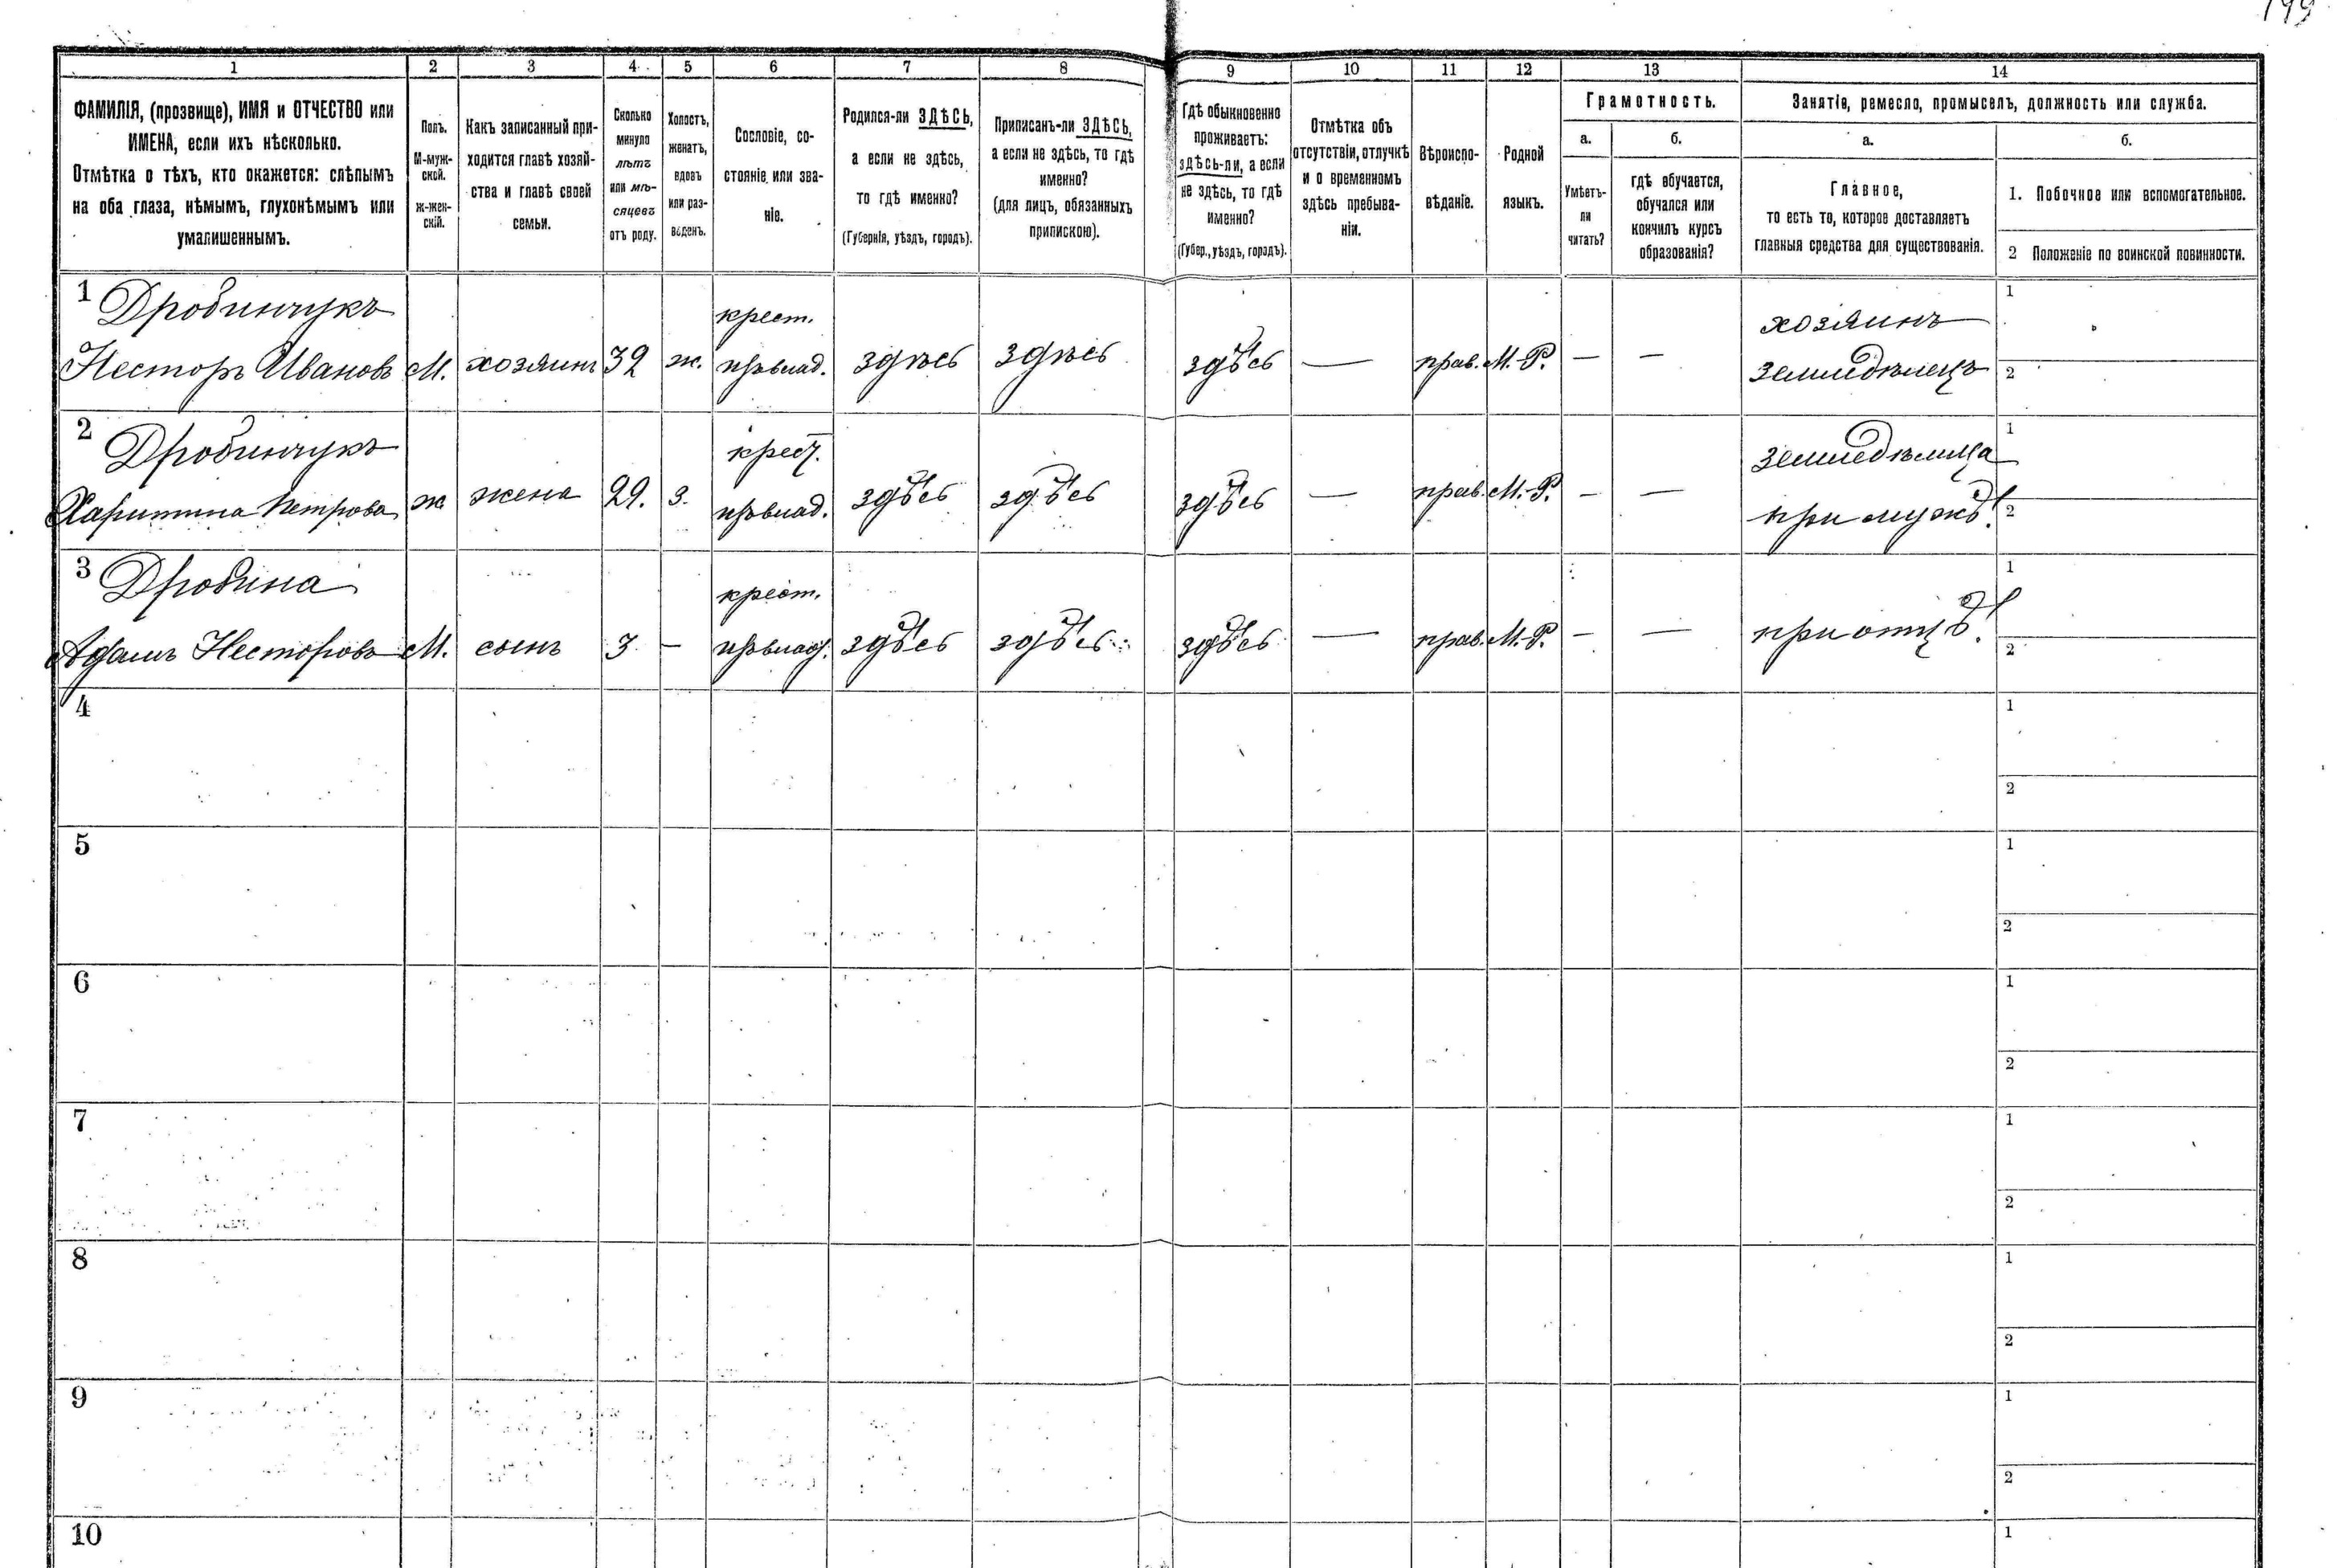 199
1 2 3 4 5 6 7 8 9 10 11 12 13 14
ФАМИЛІЯ, (прозвище), ИМЯ и ОТЧЕСТВО или
ИМЕНА, если ихъ нѣсколько.
Отмѣтка о тѣхъ, кто окажется: слѣпымъ
на оба глаза, нѣмымъ, глухонѣмымъ или
умалишеннымъ.
Полъ.
М-муж-
ской.
Ж-жен-
скій.
Какъ записанный при-
ходится главѣ хозяй-
ства и главѣ своей
семьи.
Сколько
минуло
лѣтъ
или мѣ-
сяцевъ
отъ роду.
Холостъ,
женатъ,
вдовъ
или раз-
веденъ.
Сословіе, со-
стояніе или зва-
ніе.
Родился-ли ЗДѢСЬ,
а если не здѣсь,
то гдѣ именно?
(Губернія, уѣздъ, городъ).
Приписанъ-ли ЗДѢСЬ,
а если не здѣсь, то гдѣ
именно?
(для лицъ, обязанныхъ
припискою).
Гдѣ обыкновенно
проживаетъ:
здѣсь-ли, а если
не здѣсь, то гдѣ
именно?
(Губер., уѣздъ, городъ).
Отмѣтка объ
отсутствіи, отлучкѣ
и о временномъ
здѣсь пребыва-
ніи.
Вѣроиспо-
вѣданіе.
Родной
языкъ.
Грамотность.
а.
Умѣетъ-
ли
читать?
б.
гдѣ обучается,
обучался или
кончилъ курсъ
образованія?
Занятіе, ремесло, промыселъ, должность или служба.
а.
Главное,
то есть то, которое доставляетъ
главныя средства для существованія.
б.
1. Побочное или вспомогательное.
2 Положеніе по воинской повинности.
1 Дробинчукъ крест. хозяинъ 1
Несторъ Ивановъ М. хозяинъ 32 ж. здѣсь здѣсь здѣсь — прав. М.-Р. — — земледѣлецъ 2
2 Дробинчукъ крест. земледѣлица 1
Харитина Петрова ж жена 29. з. здѣсь здѣсь здѣсь — прав. М.-Р. — — при мужѣ. 2
3 Дробина крест. 1
Адамъ Несторовъ М. сынъ 3 — здѣсь здѣсь здѣсь — прав. М.-Р. — — при отцѣ. 2
4 1
2
5 1
2
6 1
2
7 1
2
8 1
2
9 1
2
10 1